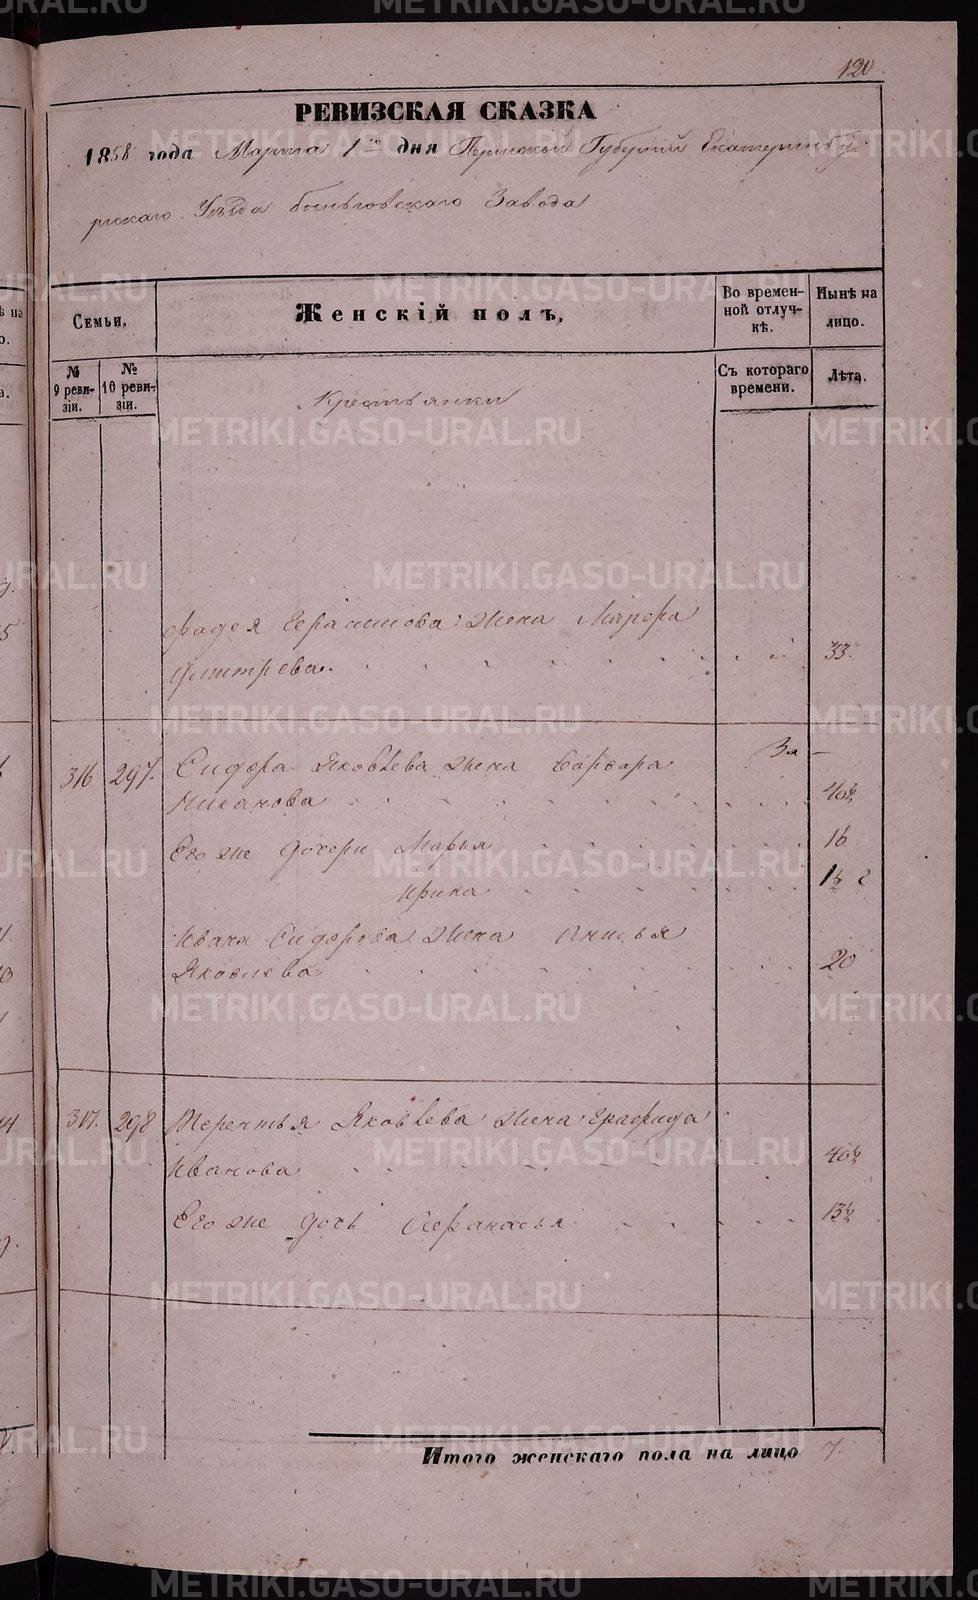 120
РЕВИЗСКАЯ СКАЗКА
1858 года Марта 1го дня Пермской Губернiй Екатеринбу
ргскаго Уѣзда Быньговскаго Завода
Семьи.
Женскiй полъ,
Во времен-
ной отлуч-
кѣ.
Нынѣ на
лицо.
№
9 реви-
зiи.
№
10 реви-
зiи.
Съ котораго
времени.
Лѣта.
Крестьянки
Фадея Герасимова жена Марфа
Дмитрева. 33.
316 297. Сидора Яковлева жена Варвара
40½
Его же дочери Марья 16
Ирина
Ивана Сидорова жена
Яковлева 20
317. 298 Терентья Яковлева жена Графида
Иванова 40½
Его же дочь Афанасья 13½
Итого женскаго пола на лицо 7.
METRIKI.GASO-URAL.RU